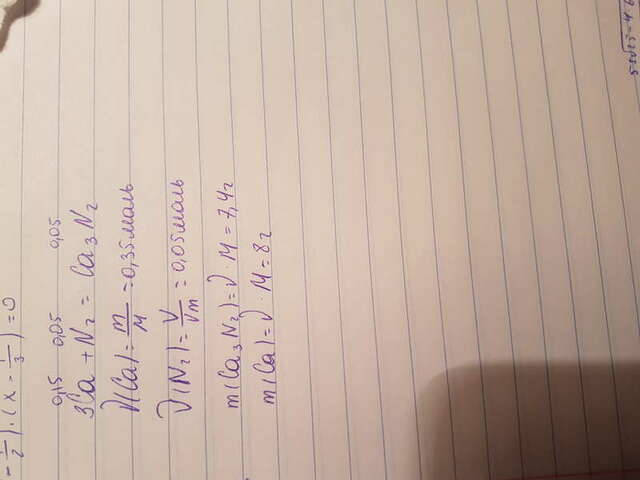 - 1/2) · (x - 1/3) = 0
0,15 0,05 0,05
3Ca + N₂ = Ca₃N₂
ν(Ca) = m/M = 0,35 моль
ν(N₂) = V/Vm = 0,05 моль
m(Ca₃N₂) = ν · M = 7,4 г
m(Ca) = ν · M = 8 г